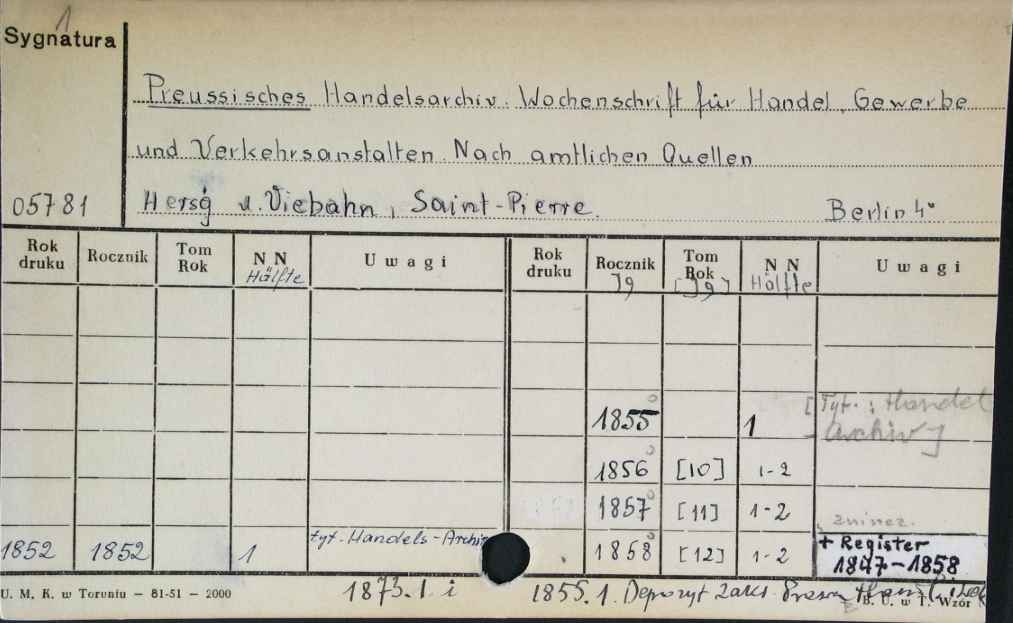 1
Sygnatura
Preussisches Handelsarchiv. Wochenschrift für Handel, Gewerbe
und Verkehrsanstalten. Nach amtlichen Quellen
05781 Hersg v. Viebahn, Saint-Pierre. Berlin 4°
Rok druku Rocznik Tom Rok N N Hälfte Uwagi Rok druku Rocznik Jg Tom Rok [Jg] N N Hälfte Uwagi
1855 1 [Tyt.: Handel
-Archiv]
1856 [10] 1-2
1857 [11] 1-2
1852 1852 1 tyt. Handels-Archiv 1858 [12] 1-2 + Register
1847-1858
U. M. K. w Toruniu — 81-51 — 2000 1873.1. i 1855.1. Depozyt B. U. w T. Wzór